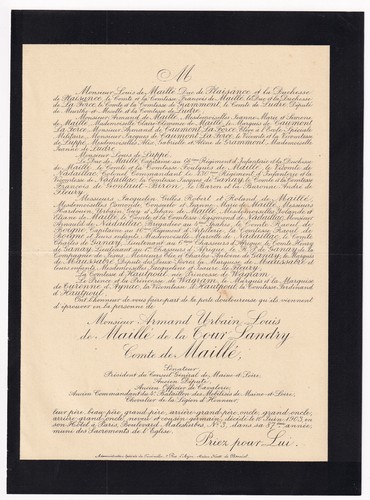 M
Monsieur Louis de Maillé, Duc de Plaisance et la Duchesse
de Plaisance, le Comte et la Comtesse François de Maillé, le Duc et la Duchesse
de La Force, le Comte et la Comtesse de Grammont, le Comte de Ludre, Député
de Meurthe et Moselle et la Comtesse de Ludre,
Monsieur Armand de Maillé, Mesdemoiselles Jeanne, Marie et Simone
de Maillé, Mademoiselle Claire Clémence de Maillé, le Marquis de Caumont
La Force, Monsieur Armand de Caumont La Force, Élève à l'École Spéciale
Militaire, Monsieur Jacques de Caumont La Force, le Vicomte et la Vicomtesse
de Luppé, Mesdemoiselles Alix, Gabrielle et Aliette de Grammont, Mademoiselle
de Ludre,
Monsieur Louis de Luppé,
Le Duc de Maillé, Capitaine au Régiment d'Infanterie et la Duchesse
de Maillé, le Comte et la Comtesse Foulques de Maillé, le Vicomte de
Nadaillac, Colonel Commandant le Régiment d'Infanterie et la
Vicomtesse de Nadaillac, le Comte et la Comtesse Jacques de Ganay, le Comte et la Comtesse
François de Gontaut Biron, le Baron et la Baronne André de
Fleury,
Messieurs Jacquelin, Gilles, Robert et Roland de Maillé,
de Maillé, Messieurs
Hardouin, Urbain, Guy et de Maillé, Mesdemoiselles
de Maillé, le Comte et la Comtesse de Nadaillac, Monsieur
de Nadaillac, Brigadier au Spahis, le Comte Raoul de
Rougé, Capitaine au Régiment d'Artillerie, la Comtesse Raoul de
Rougé et leurs enfants, de Nadaillac, le Comte
Charles de Ganay, Lieutenant au Chasseurs d'Afrique, le Comte Henry
de Ganay, Lieutenant au Chasseurs d'Afrique, le R. P. de Ganay, de la
Compagnie de Jésus, Messieurs et Charles Antoine de Ganay, le Marquis
de Maussabré et
leurs enfants, Mesdemoiselles Jacqueline et Jeanne de Fleury,
La Comtesse d'Hautpoul, née Princesse de Wagram,
Le Prince et la Princesse de Wagram, le Marquis et la Marquise
de le Comte et la Comtesse d'Hautpoul, le Comte et la Comtesse Ferdinand
d'Hautpoul,
Ont l'honneur de vous faire part de la perte douloureuse qu'ils viennent
d'éprouver en la personne de
Monsieur Armand Urbain Louis
de Maillé de la Tour Landry
Comte de Maillé,
Sénateur,
Président du Conseil Général de Maine et Loire,
Ancien Député,
Ancien Officier de Cavalerie,
Ancien Commandant du Bataillon des Mobilisés de Maine et Loire,
Chevalier de la Légion d'Honneur,
leur père, beau-père, grand-père, arrière-grand-père, oncle, grand-oncle,
arrière-grand-oncle, neveu et cousin-germain, décédé le Juin 1903, en
son Hôtel à Paris, Boulevard Malesherbes, N° 3, dans sa 87ème année,
muni des Sacrements de l'Église.
Priez pour Lui.